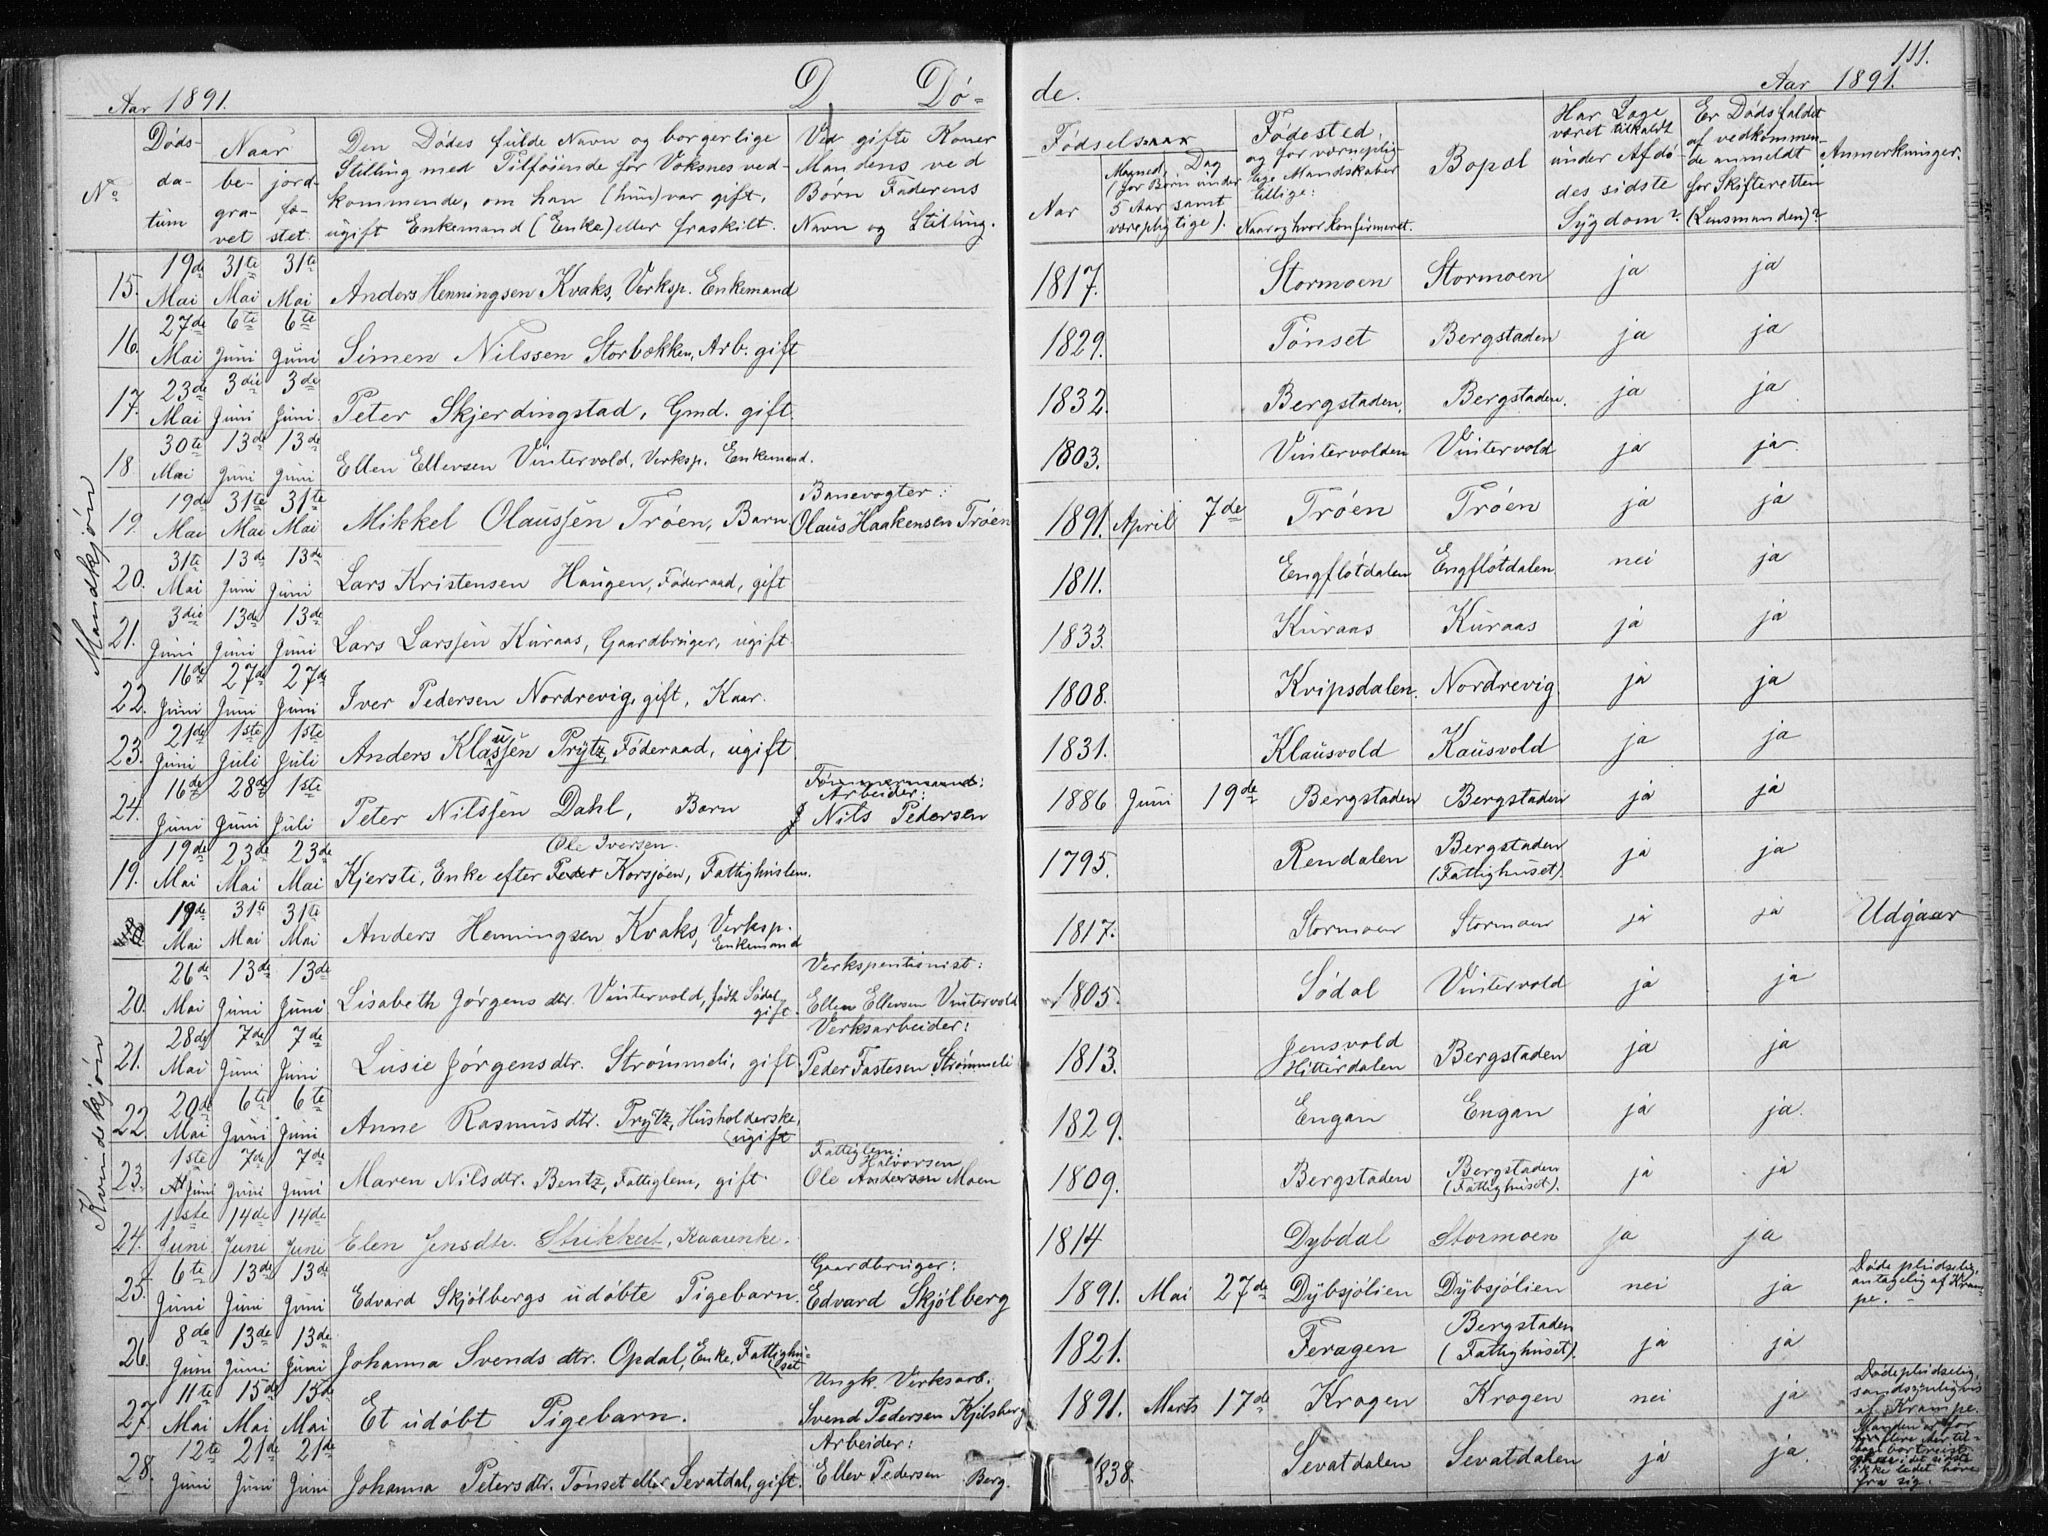 111.
Aar 1891. D Dö- de. Aar 1891.
No Döds-datum Naar begravet jordfæstet. Den Dödes fulde Navn og borgerlige Stilling med Tilföiende for Voksnes vedkommende, om han (hun) var gift, ugift Enkemand (Enke) eller fraskilt. Ved gifte Koner Mandens ved Börn Faderens Navn og Stilling. Födselsaar Aar Maaned, Dag (for Börn under 5 Aar samt værnepligtige). Födested, og for værnepligtige Mandskaber tillige: Naar og hvor konfirmeret. Bopæl Har Læge været tilkaldt under Afdödes sidste Sygdom? Er Dödsfaldet af vedkommende anmeldt for Skifteretten (Lensmanden)? Anmerkninger.
Mandkjön
15. 19de Mai 31te Mai 31te Mai Anders Henningsen Kvaks, Verksp. Enkemand 1817. Stormoen Stormoen ja ja
16. 27de Mai 6te Juni 6te Juni Simen Nilssen Storbækken, Arb. gift 1829. Tönset Bergstaden ja ja
17. 23de Mai 3die Juni 3de Juni Peter Skjerdingstad, Gmd. gift. 1832. Bergstaden, Bergstaden. ja ja
18 30te Mai 13de Juni 13de Juni Ellen Ellevsen Vintervold, Verksp. Enkemand. 1803. Vintervolden Vintervold ja ja.
19. 19de Mai 31te Mai 31te Mai Mikkel Olaussen Tröen, Barn Banevogter: Olaus Haakensen Tröen 1891. April 7de Tröen Tröen ja ja
20. 31te Mai 13de Juni 13de Juni Lars Kristensen Haugen, Föderaad, gift 1811. Engflötdalen Engflötdalen nei ja
21. 3die Juni 13de Juni 13de Juni Lars Larssen Kuraas, Gaardbruger, ugift. 1833. Kuraas Kuraas ja ja
22. 16de Juni 27de Juni 27de Juni Iver Pedersen Nordrevig, gift, Kaar. 1808. Kvipsdalen. Nordrevig. ja ja
23. 21de Juni 1ste Juli 1ste Juli Anders Klaussen Prytz, Föderaad, ugift. 1831. Klausvold Kausvold ja ja
24. 16de Juni 28de Juni 1ste Juli Peter Nilssen Dahl, Barn Tömmermand: Arbeider: Nils Pedersen 1886 Juni 19de Bergstaden Bergstaden ja ja
Kvindekjön
19. 19de Mai 23de Mai 23de Mai Kjersti, Enke efter Peder Ole Iversen Korsjöen, Fattighuslem. 1795. Rendalen Bergstaden (Fattighuset). ja ja
19de Mai 31te Mai 31te Mai Anders Henningsen Kvaks, Verksp. Enkemand 1817. Stormoen Stormoen ja ja Udgaar
20. 26de Mai 13de Juni 13de Juni Lisabeth Jörgensdtr. Vintervold, födt Södal, gift. Verkspentionist: Ellen Ellevsen Vintervold 1805. Södal Vintervold ja ja
21. 28de Mai 7de Juni 7de Juni Lusie Jörgensdtr. Strömmeli, gift Verksarbeider: Peder Fastesen Strömmeli 1813. Jensvold Hitterdalen Bergstaden ja ja
22. 20de Mai 6te Juni 6te Juni Anne Rasmusdtr. Prytz, Husholderske, ugift 1829. Engan Engan ja ja.
23. 1ste Juni 7de Juni 7de Juni Maren Nilsdtr. Bentz, Fattiglem, gift. Fattiglem: Ole Andersen Halvorsen Moen 1809. Bergstaden Bergstaden (Fattighuset). ja ja
24. 1ste Juni 14de Juni 14de Juni Elen Jensdtr. Strikkert, Kaarenke. 1814 Dybdal Stormoen ja ja
25. 6te Juni 13de Juni 13de Juni Edvard Skjölbergs udöbte Pigebarn. Gaardbruger: Edvard Skjölberg 1891. Mai 27de Dybsjölien Dybsjölien nei ja Döde pludselig, antagelig af Krampe.
26. 8de Juni 13de Juni 13de Juni Johanna Svendsdtr. Opdal, Enke, Fattighuset 1821. Feragen Bergstaden (Fattighuset). ja ja
27. 11te Mai 15de Mai 15de Mai Et udöbt Pigebarn. Ungk. Verksarb. Svend Pedersen Kjilsberg 1891. Marts 17de Krogen Krogen nei ja Döde pludselig, sandsynligvis af Krampe.
28. 12te Juni 21de Juni 21de Juni Johanna Petersdtr. Tönset eller Sevatdal, gift. Arbeider: Ellev Pedersen Berg. 1838. Sevatdalen Sevatdalen ja ja. Manden er for flere Aar tilbage bortreist i det sidste ikke ladet höre fra sig.